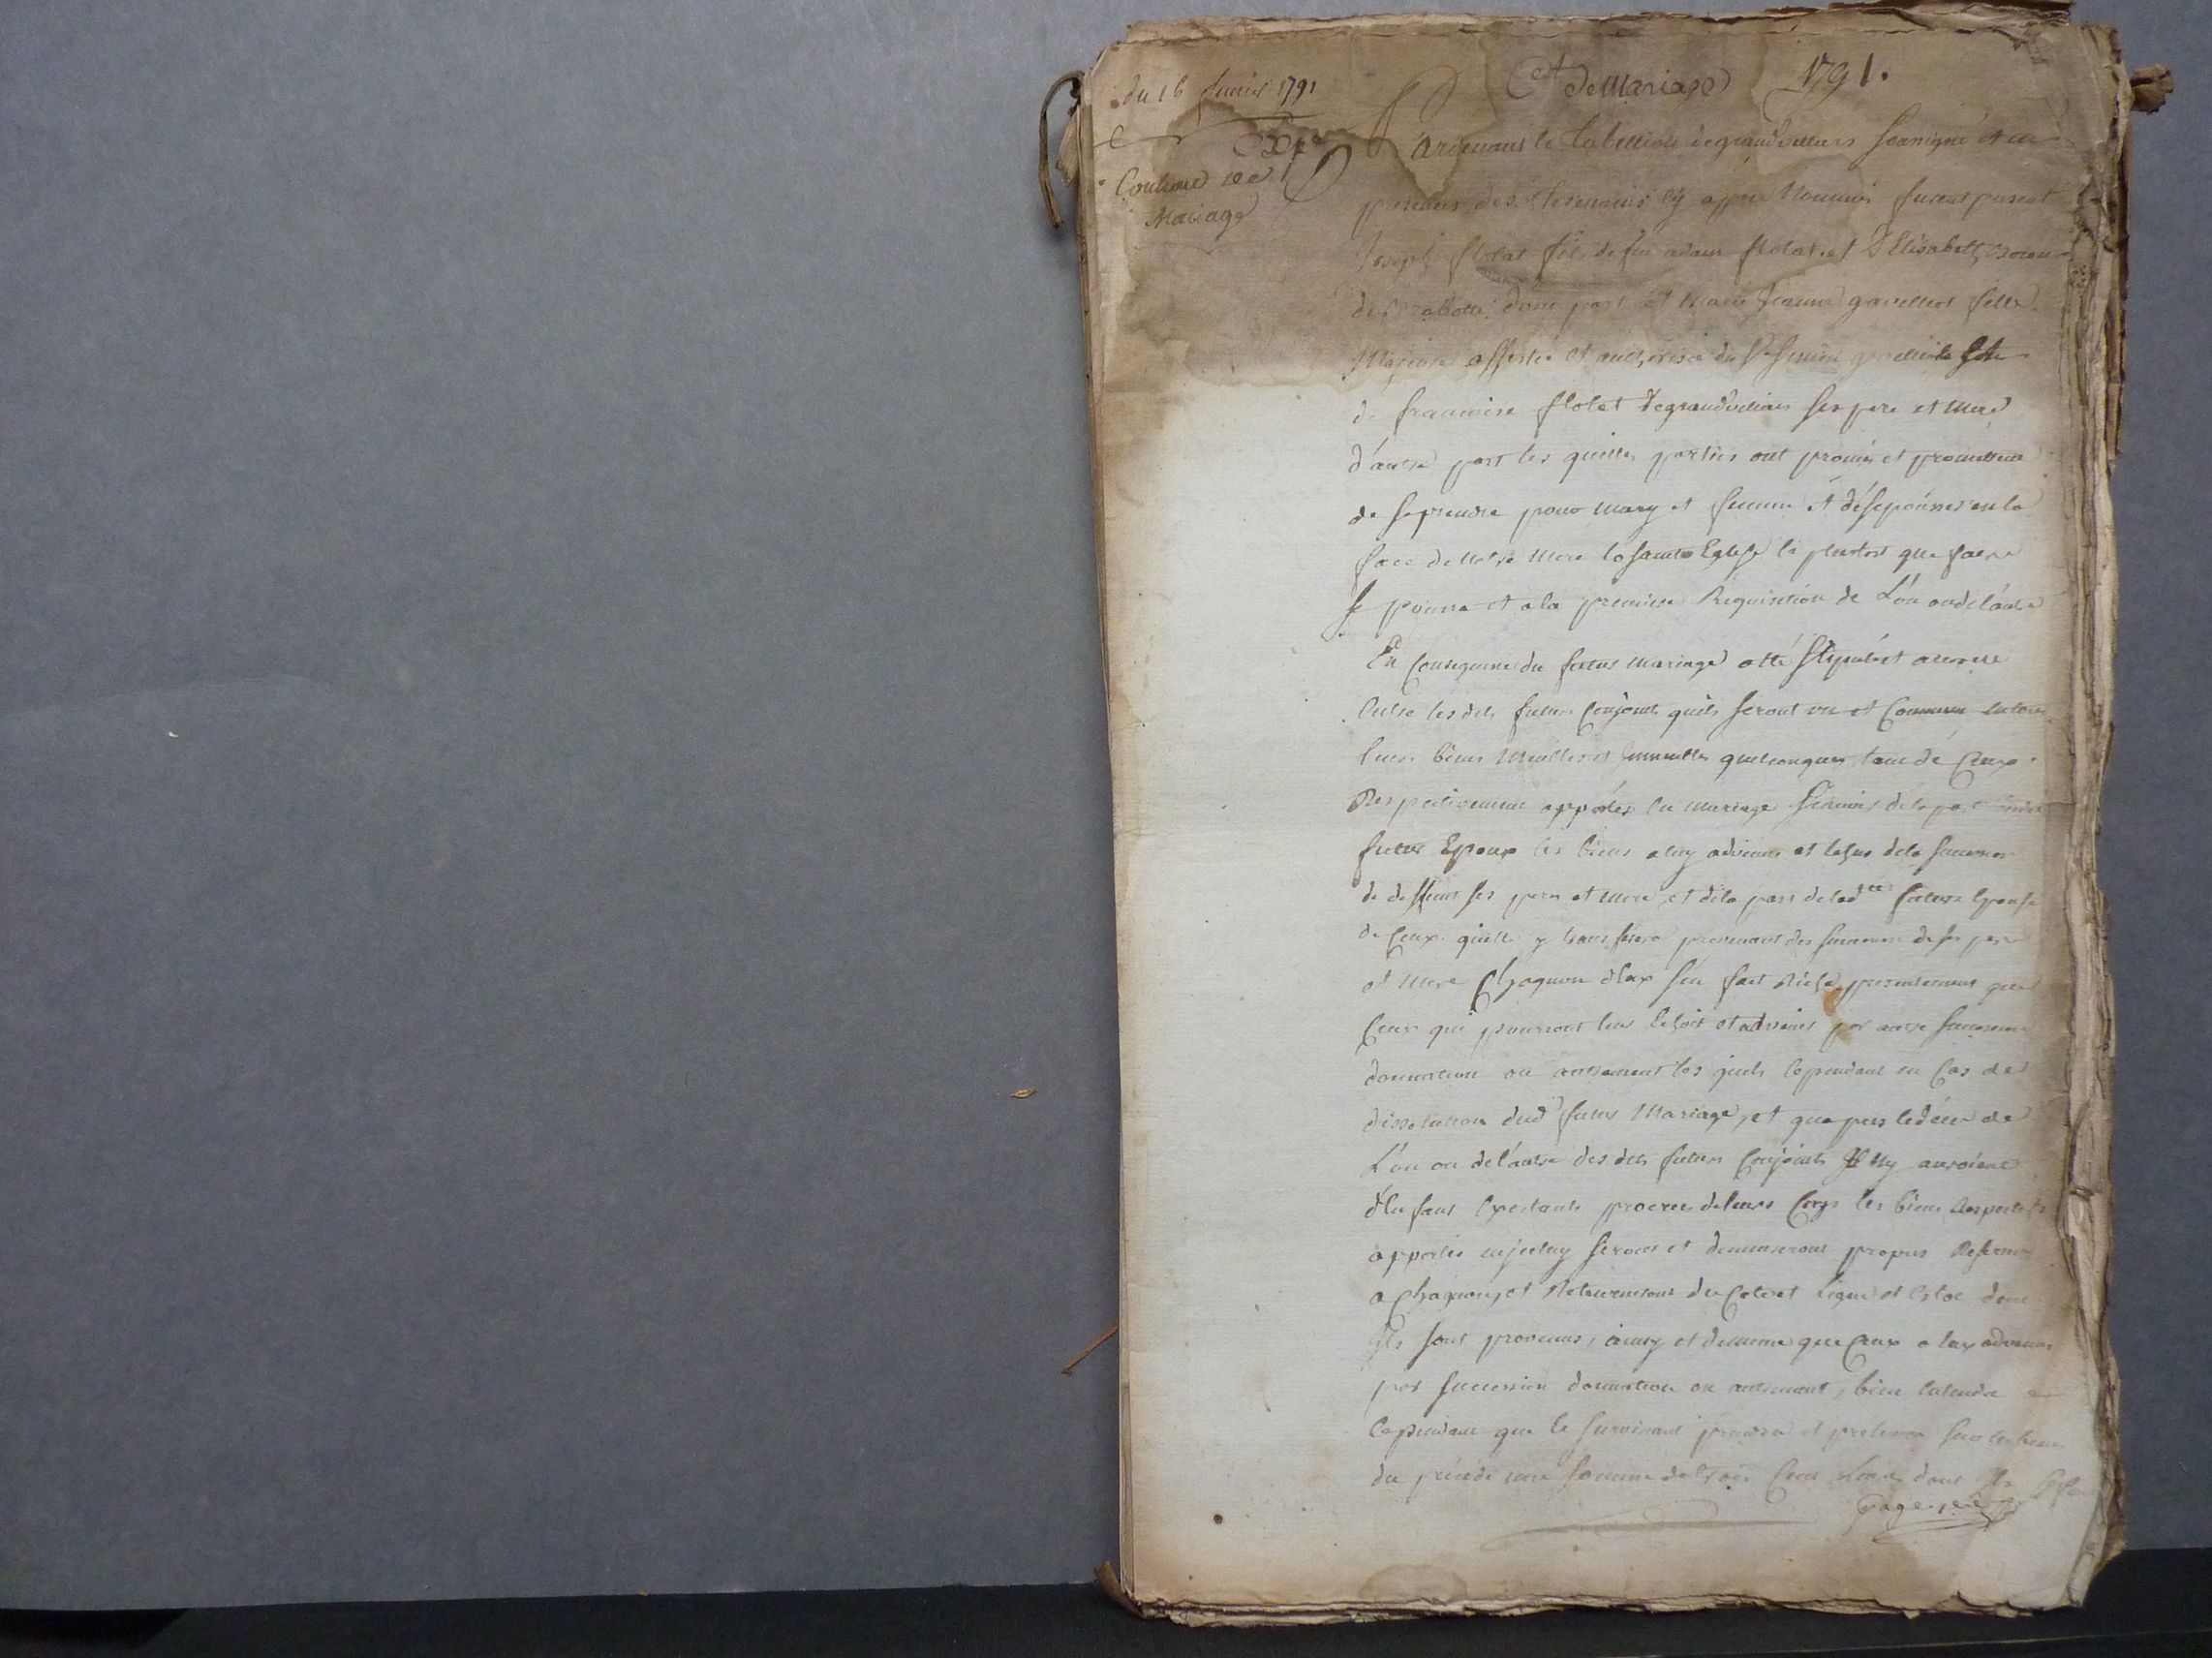 du 16 1791
Ct de Mariage 1791.
Expe
Contract de
Mariage
Pardevant le tabellion de grandvillars soussigné et en
presence des temoins cy apres Nommés furent present
Joseph flotat fils de feu adam flotat et d'Elisabeth
d'une part et Marie Jeanne gavillot fille
Majeure assistée et authorisée du Sr gavillot
de francoise flotat de grandvillars ses pere et mere
d'autre part les quelles parties ont promis et promettent
de se prendre pour mary et femme et d'Esepouser en la
face de Notre Mere la sainte Eglise le plustost que faire
se pourra et a la premiere Requisition de L'un ou de l'autre
En Consequence du futur mariage a été stipulé et accordé
Entre les dits futurs Conjoints quils seront un et Commun en tous
leurs biens Meubles et Immeubles quelconques tant de Ceux
Respectivement apportés en mariage de la part
futur Epoux les biens a luy advenus et Echus de la succession
de deffunt ses pere et mere, et de la part de lad.te future Epouse
de Ceux quelle y transferera provenant des succession de ses pere
et Mere Chaqu'un d'Eux s'en fait presentement que
Ceux qui pourront leur Echoir et advenir par autre succession
donnation ou autrement les quels Cependant en Cas de
dissolution dud futur Mariage, et que par le décés de
L'un ou de l'autre des dits futurs Conjoints Il N'y auroient
d'Enfant Existants procréé de leurs Corps les biens Respectifs
apportés en jceluy seront et demeureront propres Reservés
a Chaqu'un, et Retourneront du Coté et Ligne et Estoc dont
Ils sont provenus, ainsy et de meme que Ceux a Eux advenus
par succession donnation ou autrement, bien Entendu
Cependant que le survivant prendra et prelevera sur les biens
du précédé une somme de Trois Cent Livres dont Ils
page 1ere